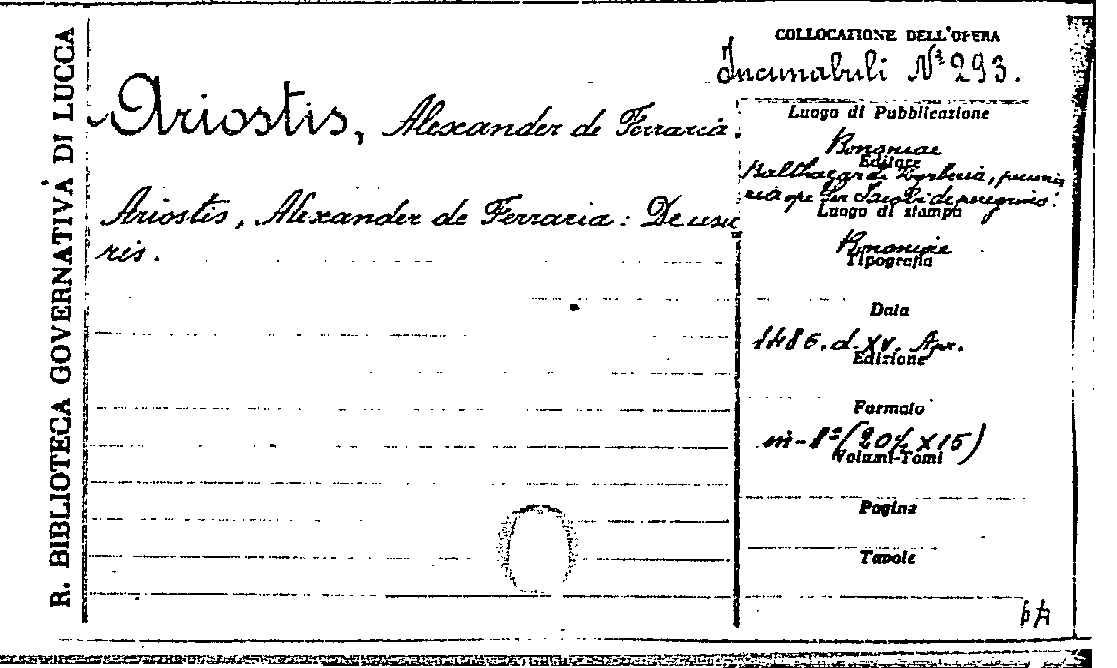 R. BIBLIOTECA GOVERNATIVA DI LUCCA
COLLOCAZIONE DELL'OPERA
Incunabuli Nº 293.
Ariostis, Alexander de Ferraria.
Ariostis, Alexander de Ferraria: De usu
ris.
Luogo di Pubblicazione
Bononiae
Editore
Balthazar de
Ser Jacobi de peregrino.
Luogo di stampa
Bononiae
Tipografia
Data
1486. d. XV. Apr.
Edizione
Formato
in-8º (20½ X 15)
Volumi-Tomi
Pagina
Tavole